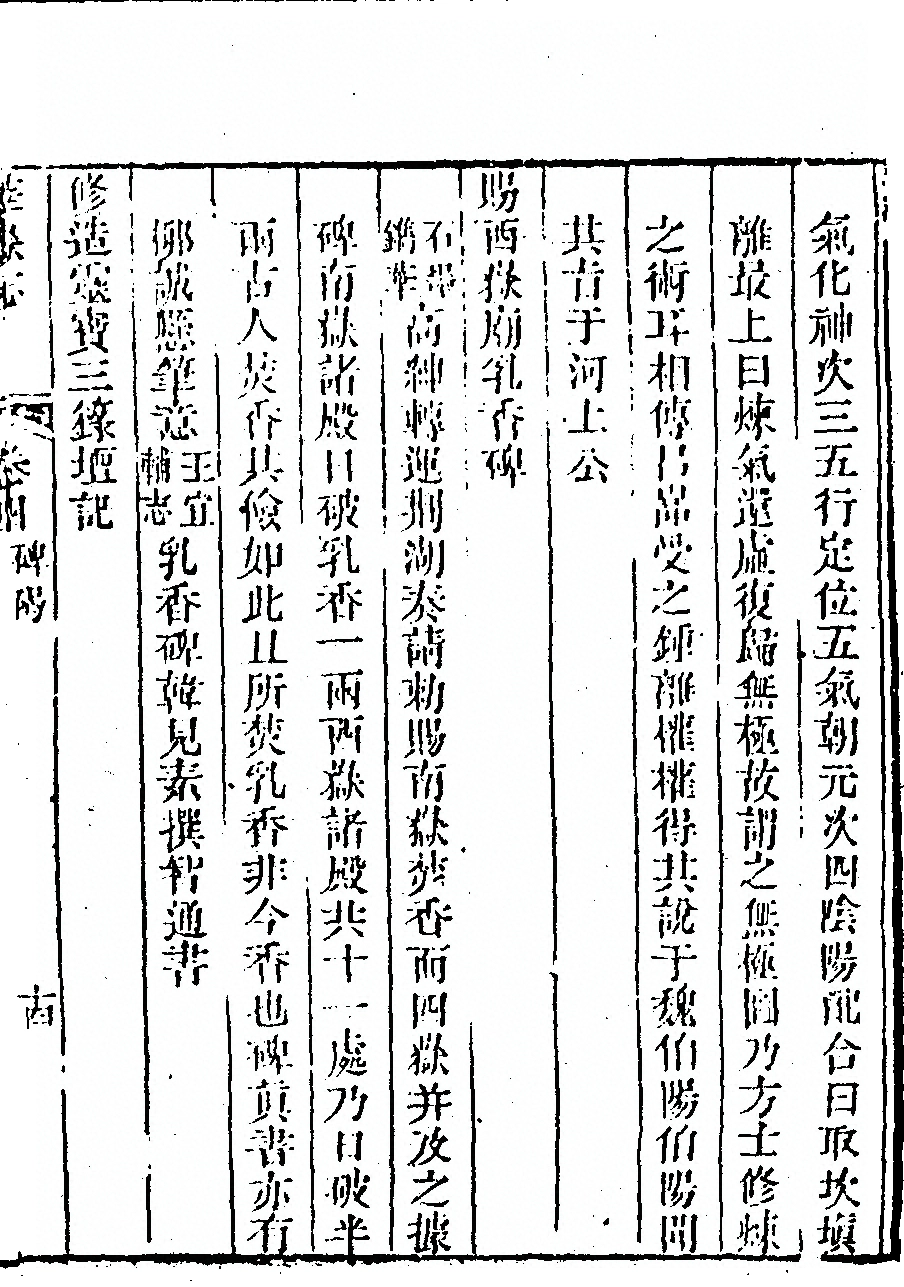 氣化神次三五行定位五氣朝元次四陰陽配合曰取坎塡
離最上曰煉氣還虛復歸無極故謂之無極圖乃方士修煉
之術耳相傳吕嵒受之鍾離權權得其說于魏伯陽伯陽聞
其旨于河上公
賜西嶽廟乳香碑
石墨鐫華高紳轉運荆湖奏請勅賜南嶽焚香而四嶽并及之據
碑南嶽諸殿日破乳香一兩西嶽諸殿共十一處乃日破半
兩古人焚香其儉如此且所焚乳香非今香也碑眞書亦有
鄉誠懸筆意王宜輔志乳香碑韓見素撰智通書
修造靈寶三籙壇記
卷四 碑碣